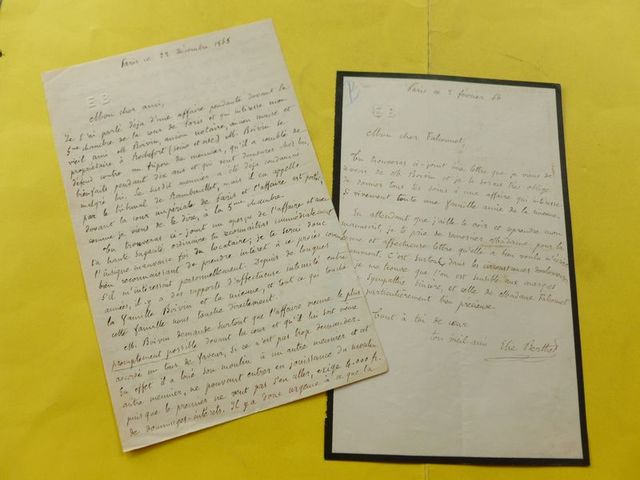 Paris ce 22 Décembre 1868
EB
Mon cher ami,
Je t'ai parlé déjà d'une affaire pendante devant la
5me chambre de la cour de Paris et qui intéresse mon
vieil ami M. Boivin, ancien notaire, ancien maire et
propriétaire à Rochefort (Seine et oise). M. Boivin se
défend contre un fripon de meunier, qu'il a comblé de
bienfaits pendant dix ans et qui veut demeurer chez lui,
malgré lui. Le susdit meunier a été déjà condamné
par le tribunal de Rambouillet, mais il en appelle
devant la cour impériale de Paris et l'affaire est portée,
comme je viens de le dire, à la 5me chambre.
Tu trouveras ci-joint un exposé de l'affaire et avec
ta haute sagacité ordinaire tu reconnaîtras immédiatement
l'insigne mauvaise foi du locataire; je te serai donc
bien reconnaissant de prendre intérêt à ce procès comme
s'il m'intéressait personnellement. Depuis de longues
années, il y a des rapports d'affectueuse intimité entre
la famille Boivin et la mienne, et tout ce qui touche
cette famille nous touche directement.
M. Boivin demande surtout que l'affaire vienne le plus
promptement possible devant la cour et qu'il lui soit
accordé un tour de faveur, si ce n'est pas trop demander.
En effet il a loué son moulin à un autre meunier et cet
autre meunier, ne pouvant entrer en jouissance du moulin
puisque le premier ne veut pas s'en aller, exige 6.000 f.
de dommages-intérêts. Il y a donc urgence à ce que la
Paris ce 2 février
EB
Mon cher
Tu trouveras ci-joint une lettre que je viens de
recevoir de M. Boivin et je te serais très obligé
de donner tous tes soins à une affaire qui intéresse
si vivement toute une famille amie de la mienne.
En attendant que j'aille te voir et reprendre mon
manuscrit, je te prie de remercier Madame pour la
bonne et affectueuse lettre qu'elle a bien voulu m'écrire
C'est surtout dans les circonstances douloureuses,
je me trouve que l'on est sensible aux marques
de sympathie sincère, et celle de Madame
particulièrement bien précieuse.
Tout à toi de cœur
ton vieil ami Elie Berthet